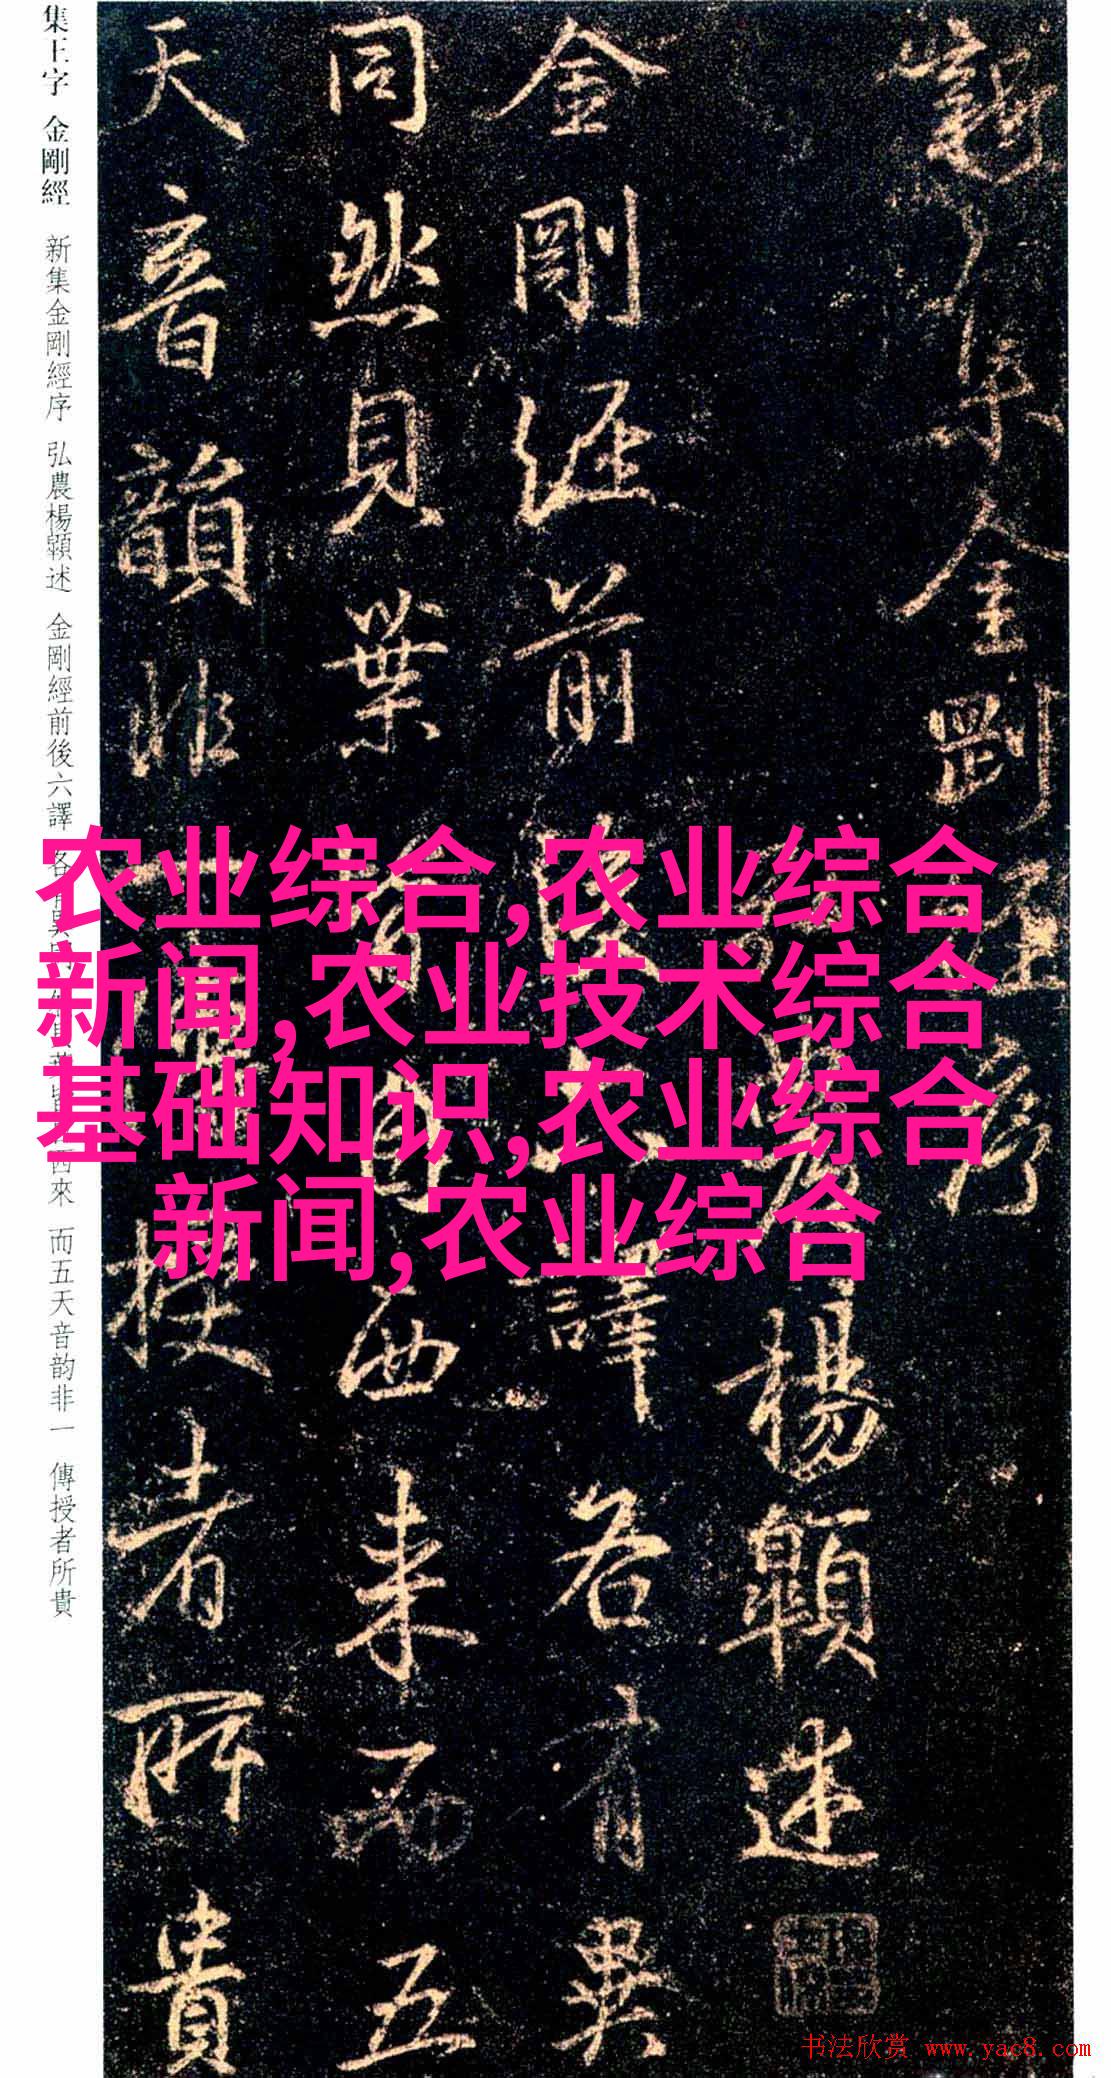 集王字 金剛經 新集金剛經序 弘農楊顗述 金剛經前後六譯 各有異同 西來 而五天音韵非一 傳授者所貴
新集金剛經序
楊顗述
金剛經前後六譯各有異
同然貝葉皆自西来而五
天音韻非一傳授者所貴
农业综合,农业综合
新闻,农业技术综合
基础知识,农业综合
新闻,农业综合
书法欣赏 www.yac8.com